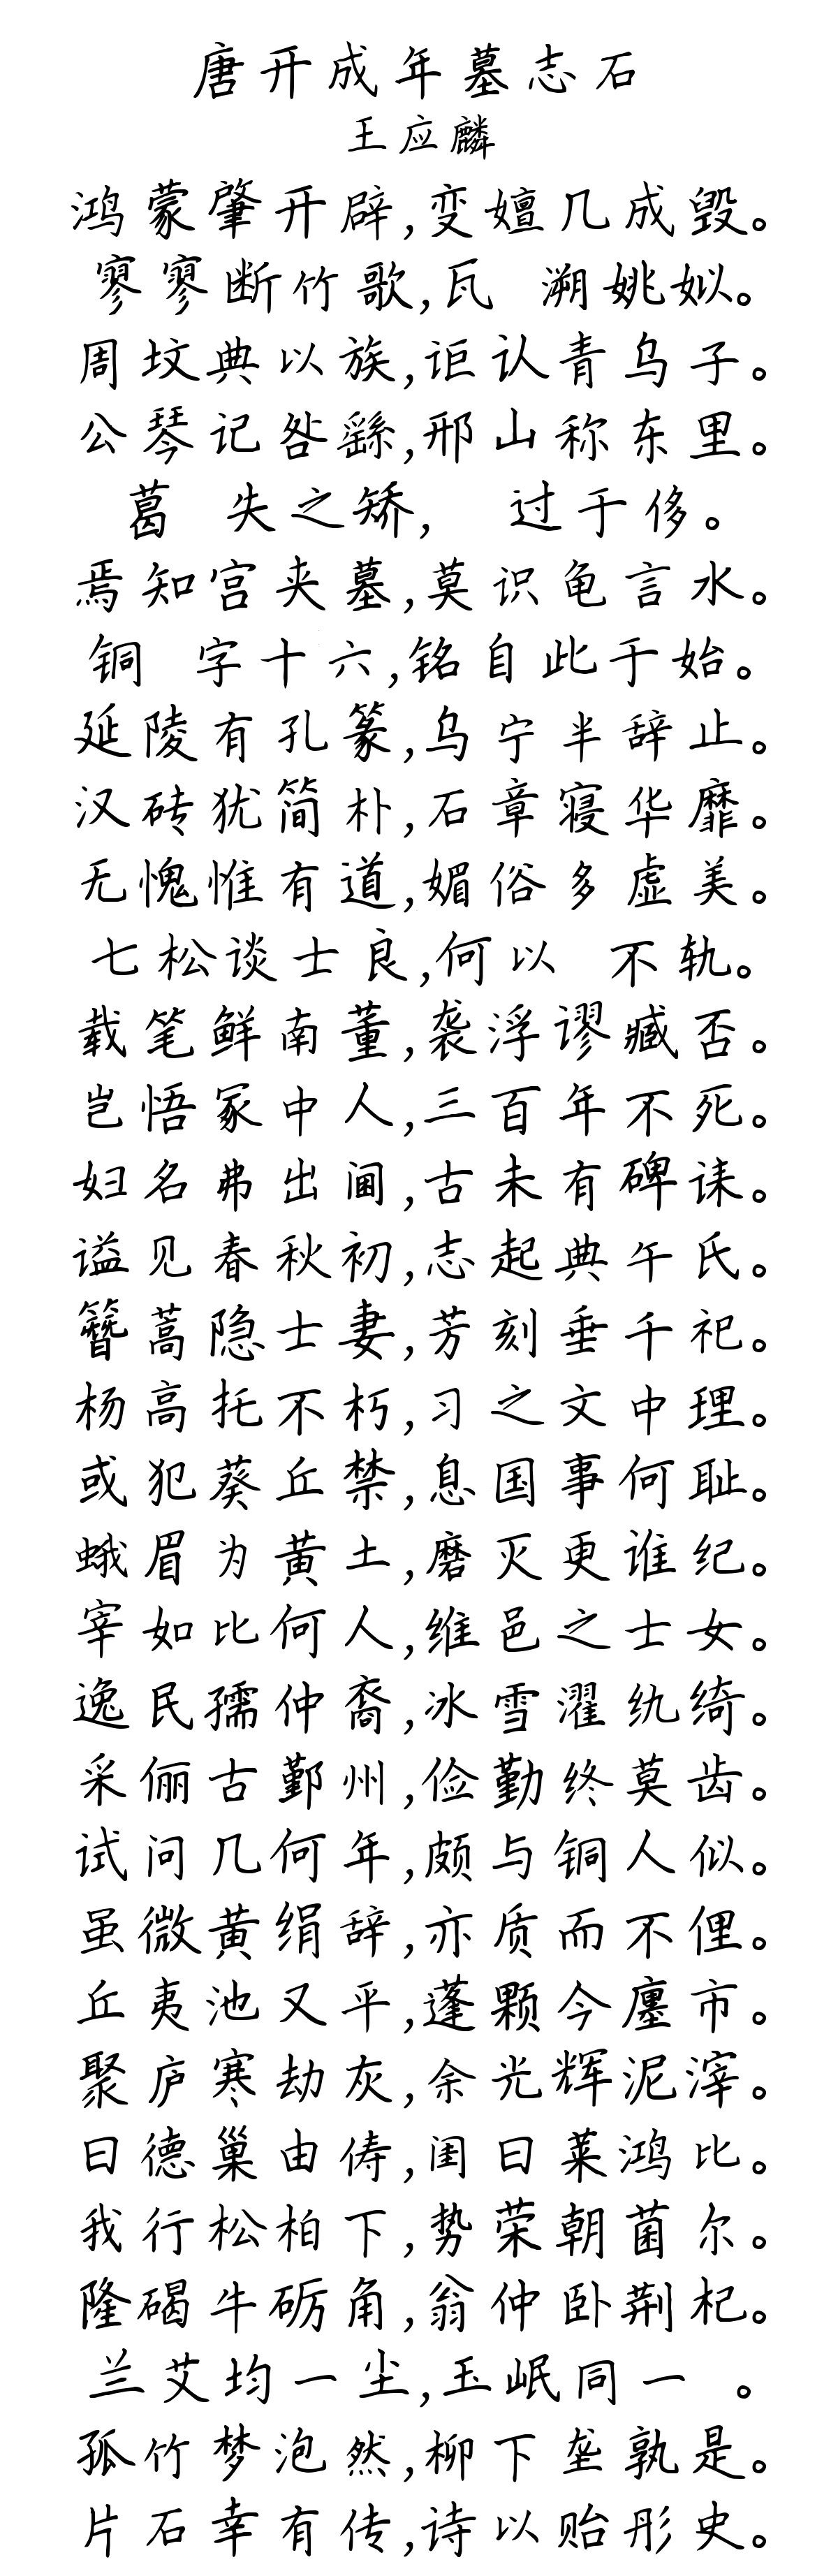 唐开成年墓志石
王应麟
鸿蒙肇开辟,变嬗几成毁。
寥寥断竹歌,瓦 溯姚姒。
周坟典以族,讵认青乌子。
公琴记咎繇,邢山称东里。
葛 失之矫, 过于侈。
焉知宫夹墓,莫识龟言水。
铜 字十六,铭自此于始。
延陵有孔篆,乌宁半辞止。
汉砖犹简朴,石章寝华靡。
无愧惟有道,媚俗多虚美。
七松谈士良,何以 不轨。
载笔鲜南董,袭浮谬臧否。
岂悟冢中人,三百年不死。
妇名弗出阃,古未有碑诔。
谥见春秋初,志起典午氏。
簪蒿隐士妻,芳刻垂千祀。
杨高托不朽,习之文中理。
或犯葵丘禁,息国事何耻。
蛾眉为黄土,磨灭更谁纪。
宰如比何人,维邑之士女。
逸民孺仲裔,冰雪濯纨绮。
采俪古鄞州,俭勤终莫齿。
试问几何年,颇与铜人似。
虽微黄绢辞,亦质而不俚。
丘夷池又平,蓬颗今廛市。
聚庐寒劫灰,余光辉泥滓。
曰德巢由俦,闺曰莱鸿比。
我行松柏下,势荣朝菌尔。
隆碣牛砺角,翁仲卧荆杞。
兰艾均一尘,玉岷同一 。
孤竹梦泡然,柳下垄孰是。
片石幸有传,诗以贻彤史。